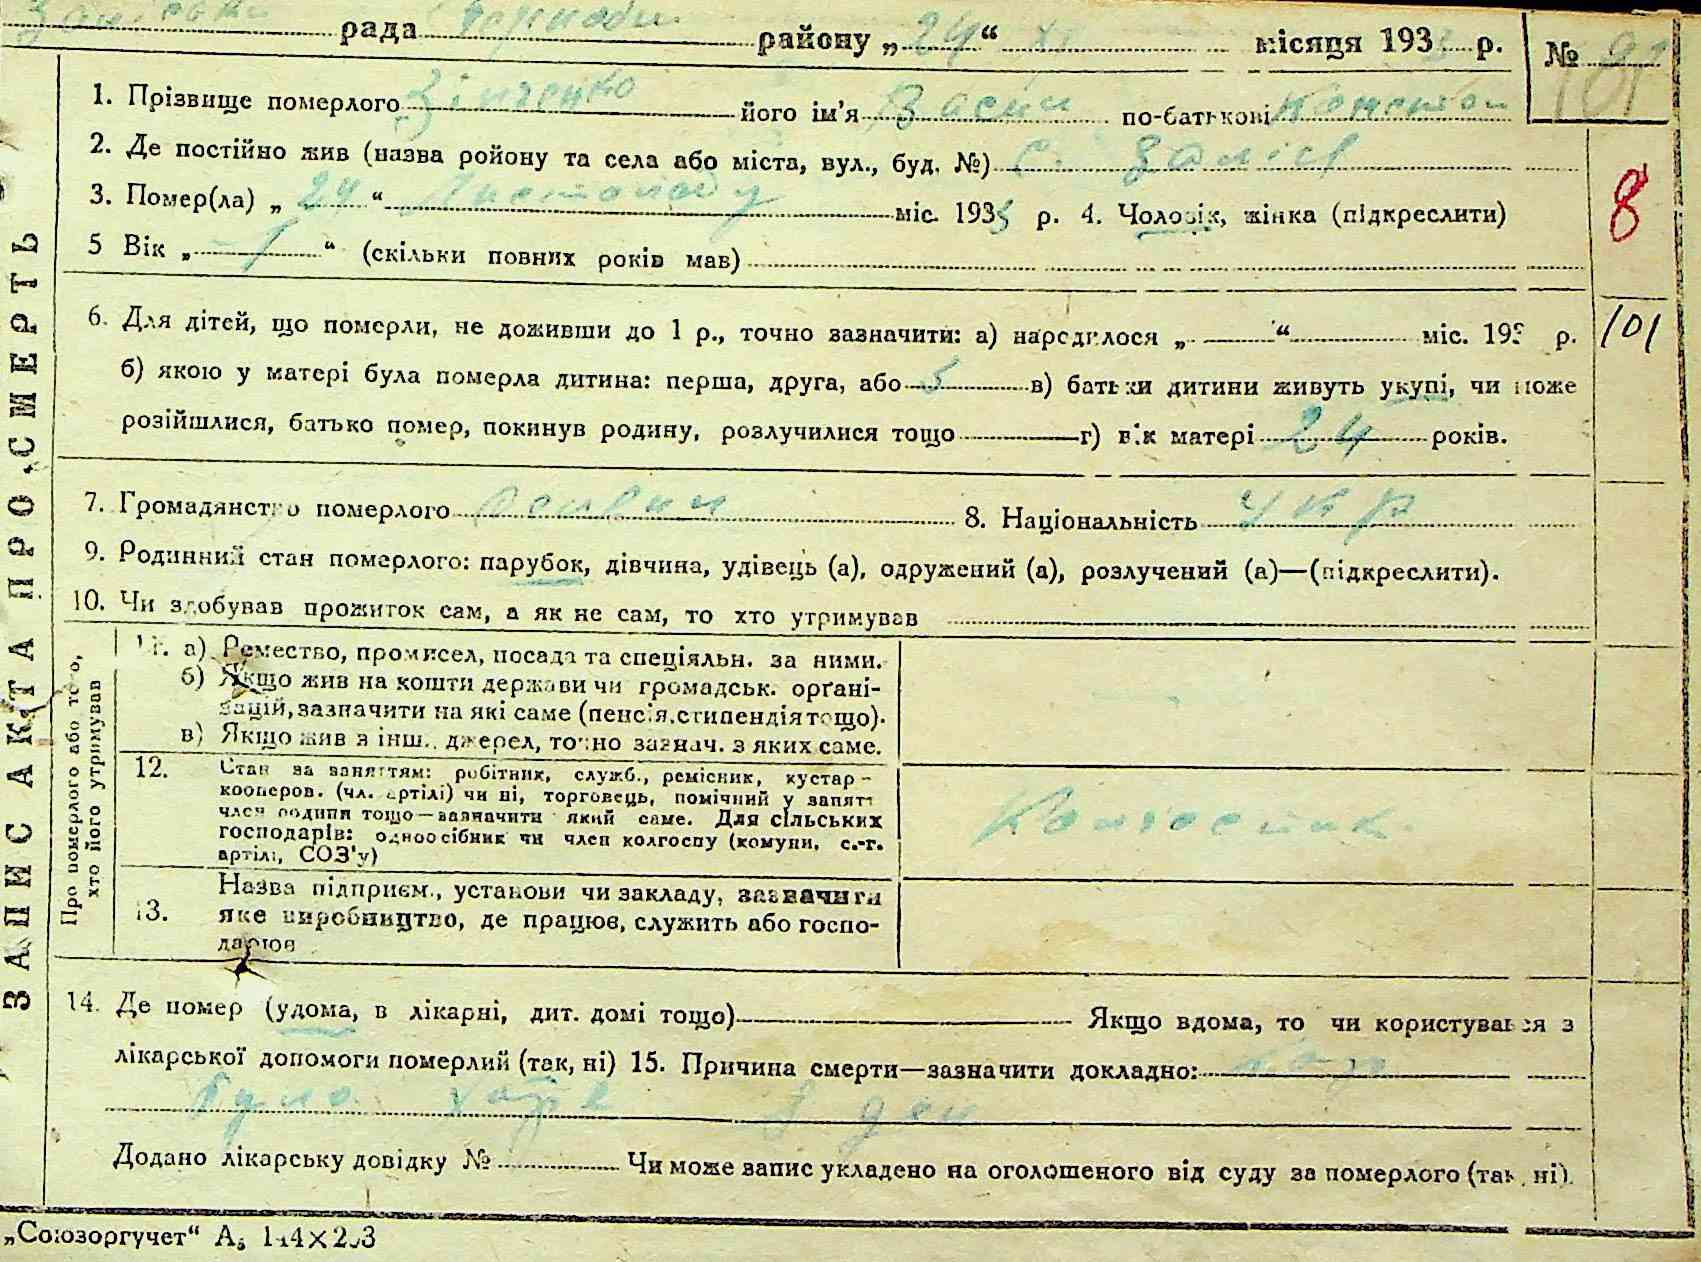 рада району „24“ XI місяця 193 р. №
1. Прізвище померлого Зінченко його ім'я по-батькові
2. Де постійно жив (назва ройону та села або міста, вул., буд. №) с.
3. Помер(ла) „24“ Листопаду міс. 193 р. 4. Чоловік, жінка (підкреслити)
8
5 Вік „1“ (скільки повних років мав)
6. Для дітей, що померли, не доживши до 1 р., точно зазначити: а) народилося „ “ міс. 193 р.
101
б) якою у матері була померла дитина: перша, друга, або 5 в) батьки дитини живуть укупі, чи може
розійшлися, батько помер, покинув родину, розлучилися тощо г) вік матері 24 років.
7. Громадянство померлого 8. Національність Укр
9. Родинний стан померлого: парубок, дівчина, удівець (а), одружений (а), розлучений (а)—(підкреслити).
10. Чи здобував прожиток сам, а як не сам, то хто утримував
ЗАПИС АКТА ПРО СМЕРТЬ
Про померлого або того, хто його утримував
11. а) Ремество, промисел, посада та спеціяльн. за ними.
б) Якщо жив на кошти держави чи громадськ. орґані-
зацій, зазначити на які саме (пенсія, стипендія тощо).
в) Якщо жив з інш. джерел, точно зазнач. з яких саме.
12. Стан за заняттям: робітник, служб., ремісник, кустар-
кооперов. (чл. артілі) чи ні, торговець, помічний у занятт
член родини тощо—зазначити який саме. Для сільських
господарів: одноосібник чи член колгоспу (комуни, с.-г.
артілі, СОЗ'у)
Колгоспник
13. Назва підприєм., установи чи закладу, зазначити
яке виробництво, де працює, служить або госпо-
дарює
14. Де помер (удома, в лікарні, дит. домі тощо) Якщо вдома, то чи користувався з
лікарської допомоги померлий (так, ні) 15. Причина смерти—зазначити докладно:
Додано лікарську довідку № Чи може запис укладено на оголошеного від суду за померлого (так, ні).
„Союзоргучет“ А5 144×203